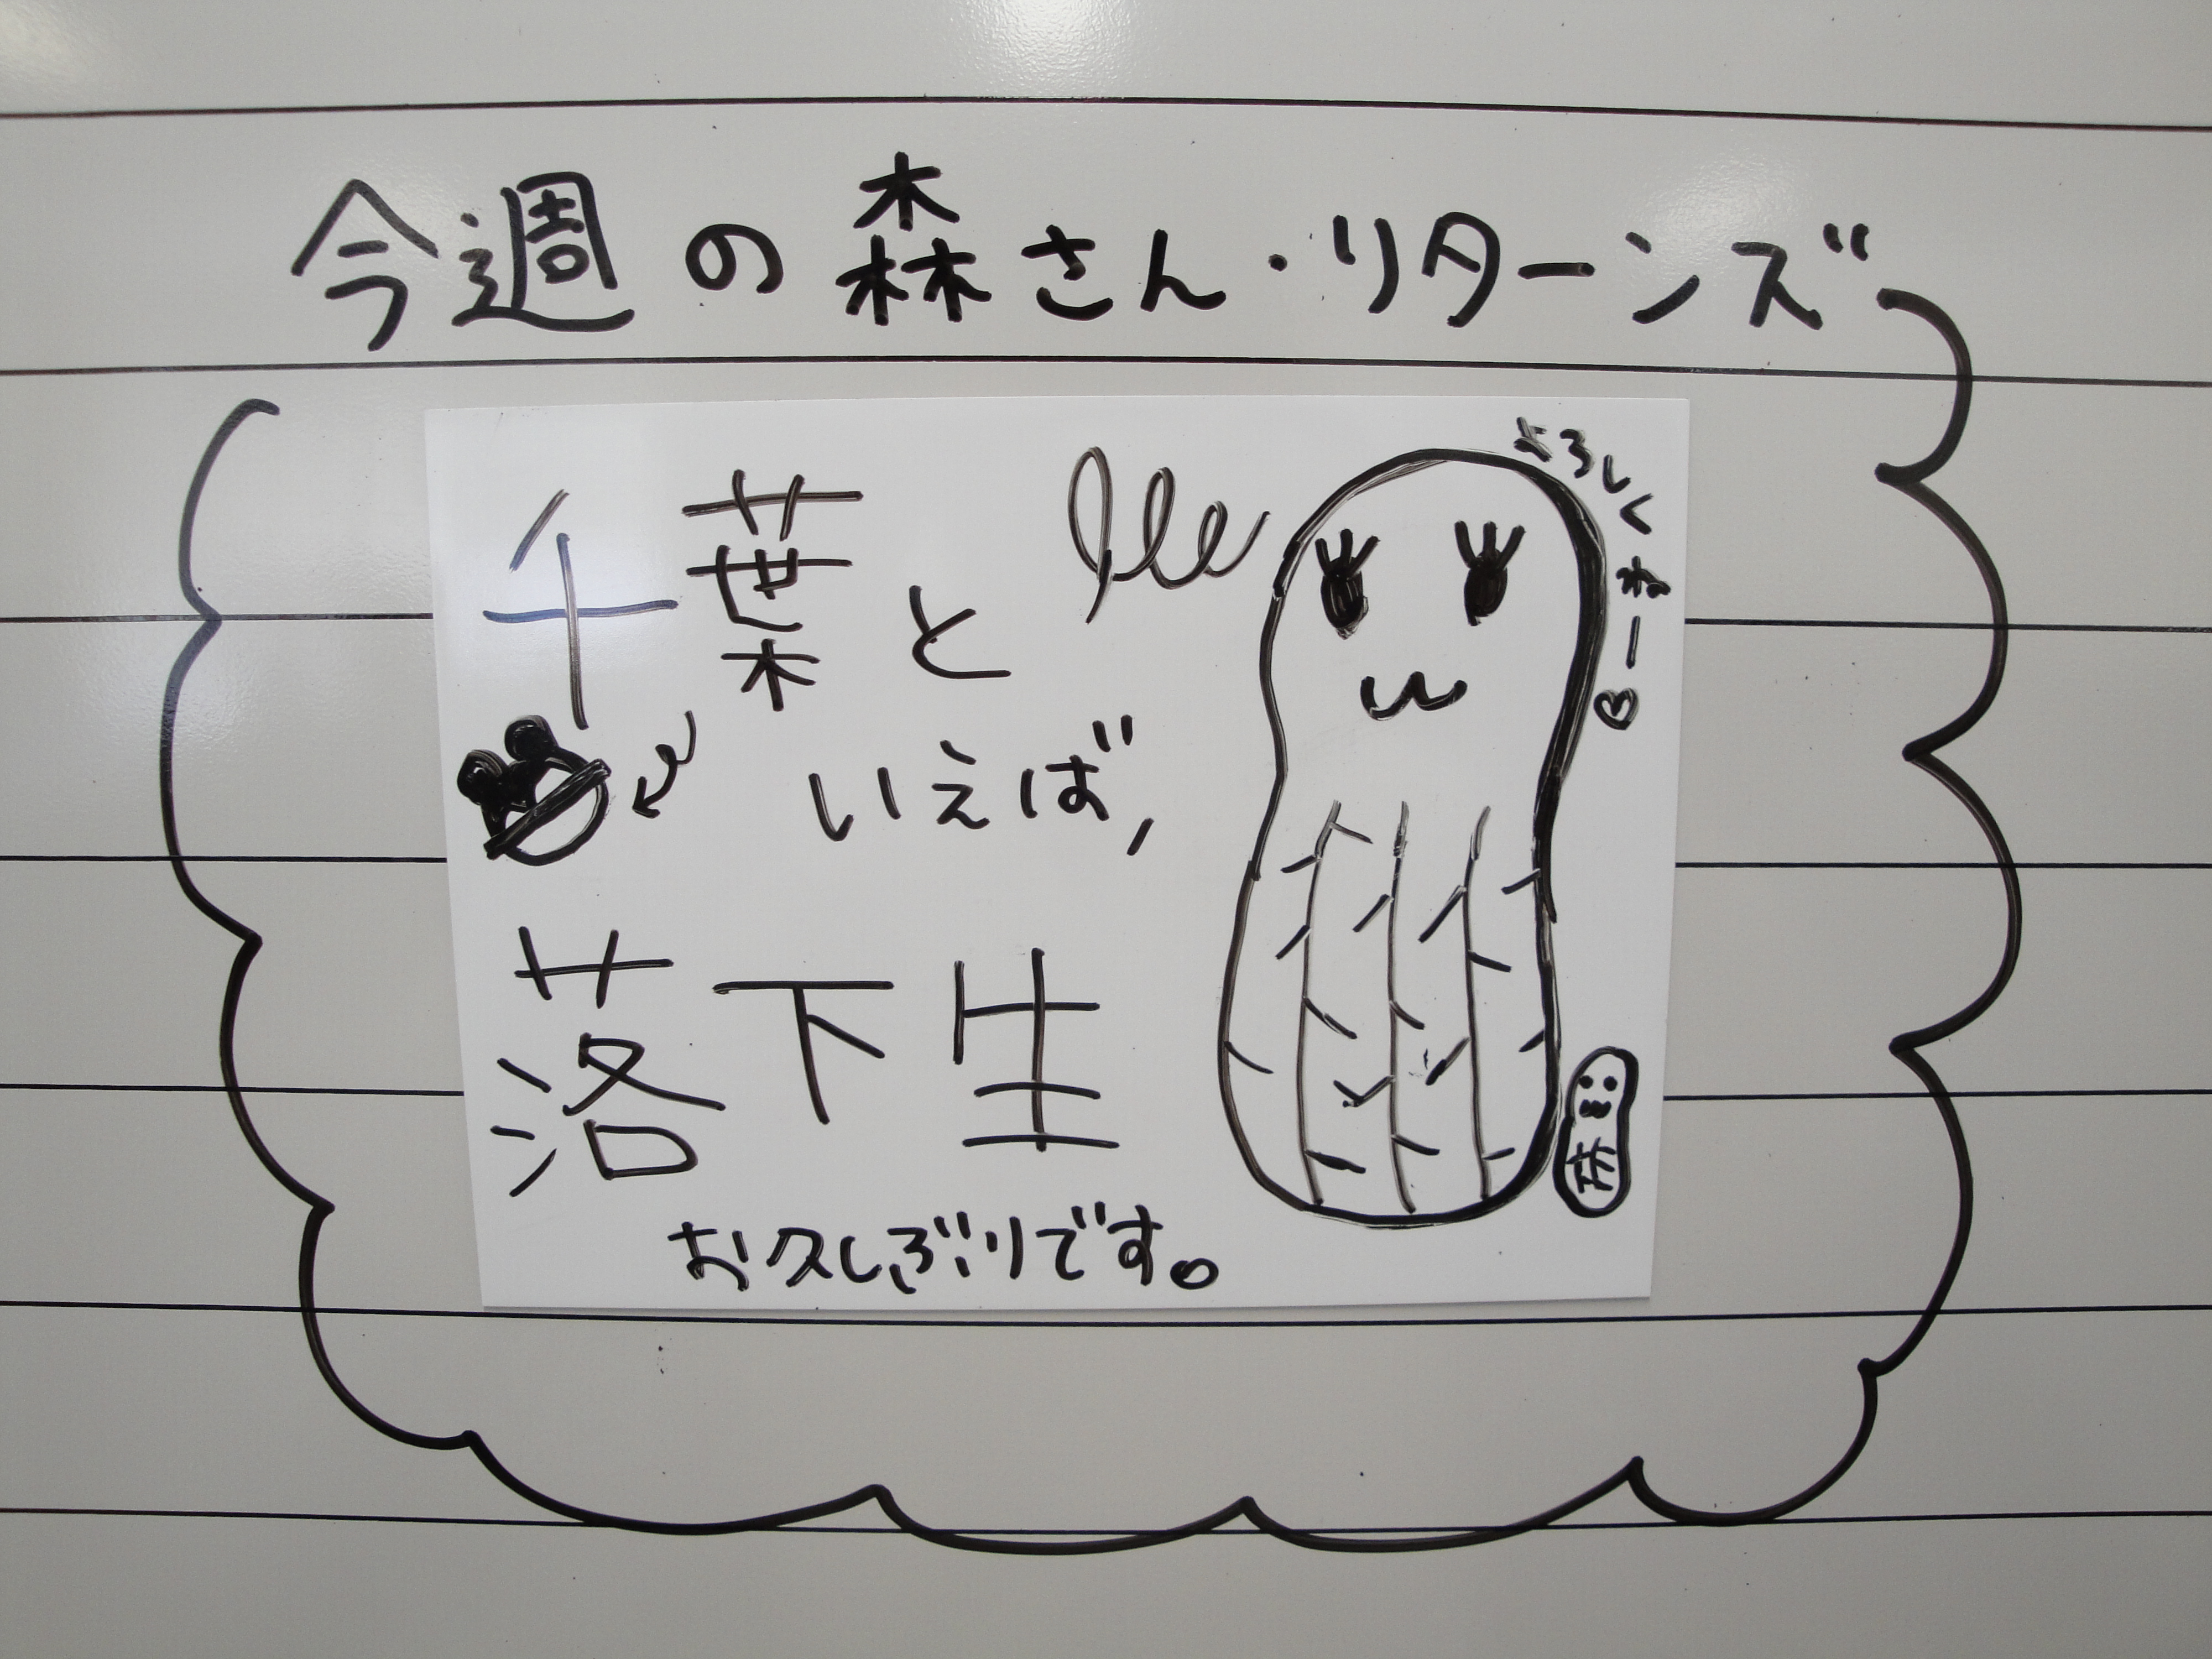 今週の森さん・リターンズ
千葉と
いえば,
落下生
お久しぶりです。
よろしくねー♡